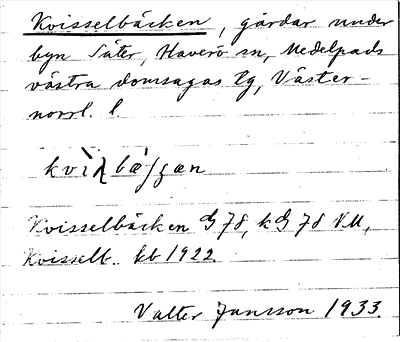 Kvisselbäcken, gårdar under
byn Säter, Haverö sn, Medelpads
västra domsagas tg, Väster-
norrl. l.
Kvisselbäcken G 78, k G 78 NV,
Kvisselb. kb 1922.
Valter Jansson 1933.